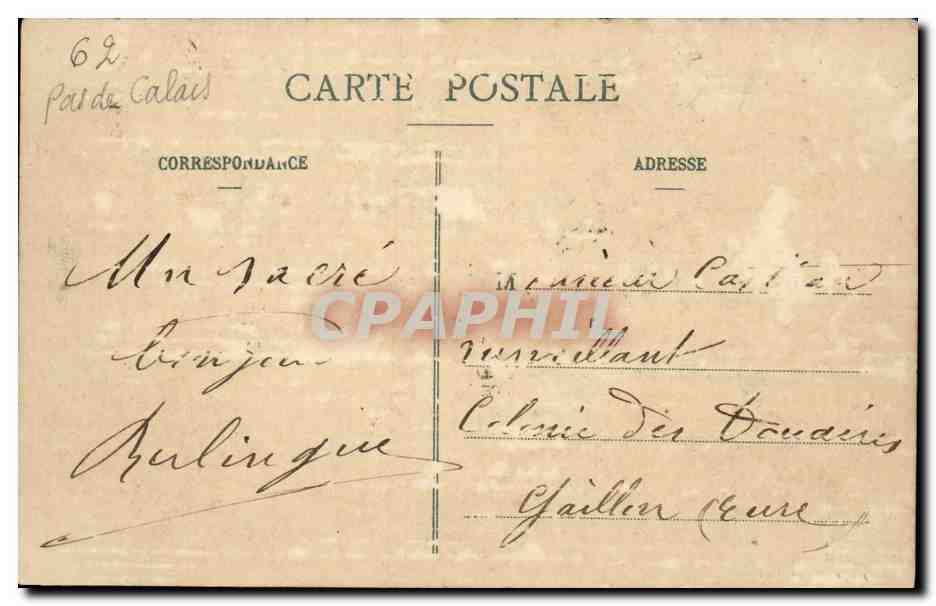 62
Pas de Calais
CARTE POSTALE
CORRESPONDANCE
ADRESSE
Un sacré
bonjour
Berlingue
Monsieur
surveillant
Colonie des Douaires
Gaillon (Eure)
CPAPHIL